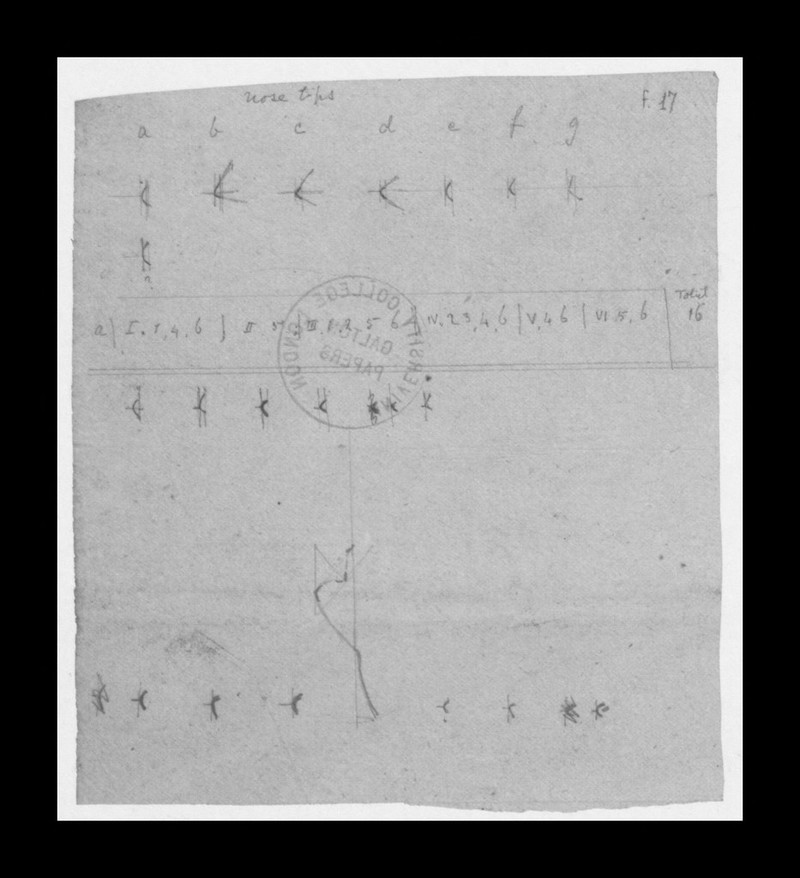 nose tips
F. 17
a b c d e f g
?
Total
a | I. 1, 4, 6 | II 5 | III, 5 6 | IV. 2 3, 4, 6 | V. 4 6 | VI. 5, 6 | 16
UNIVERSITY COLLEGE LONDON
GALTON
PAPERS